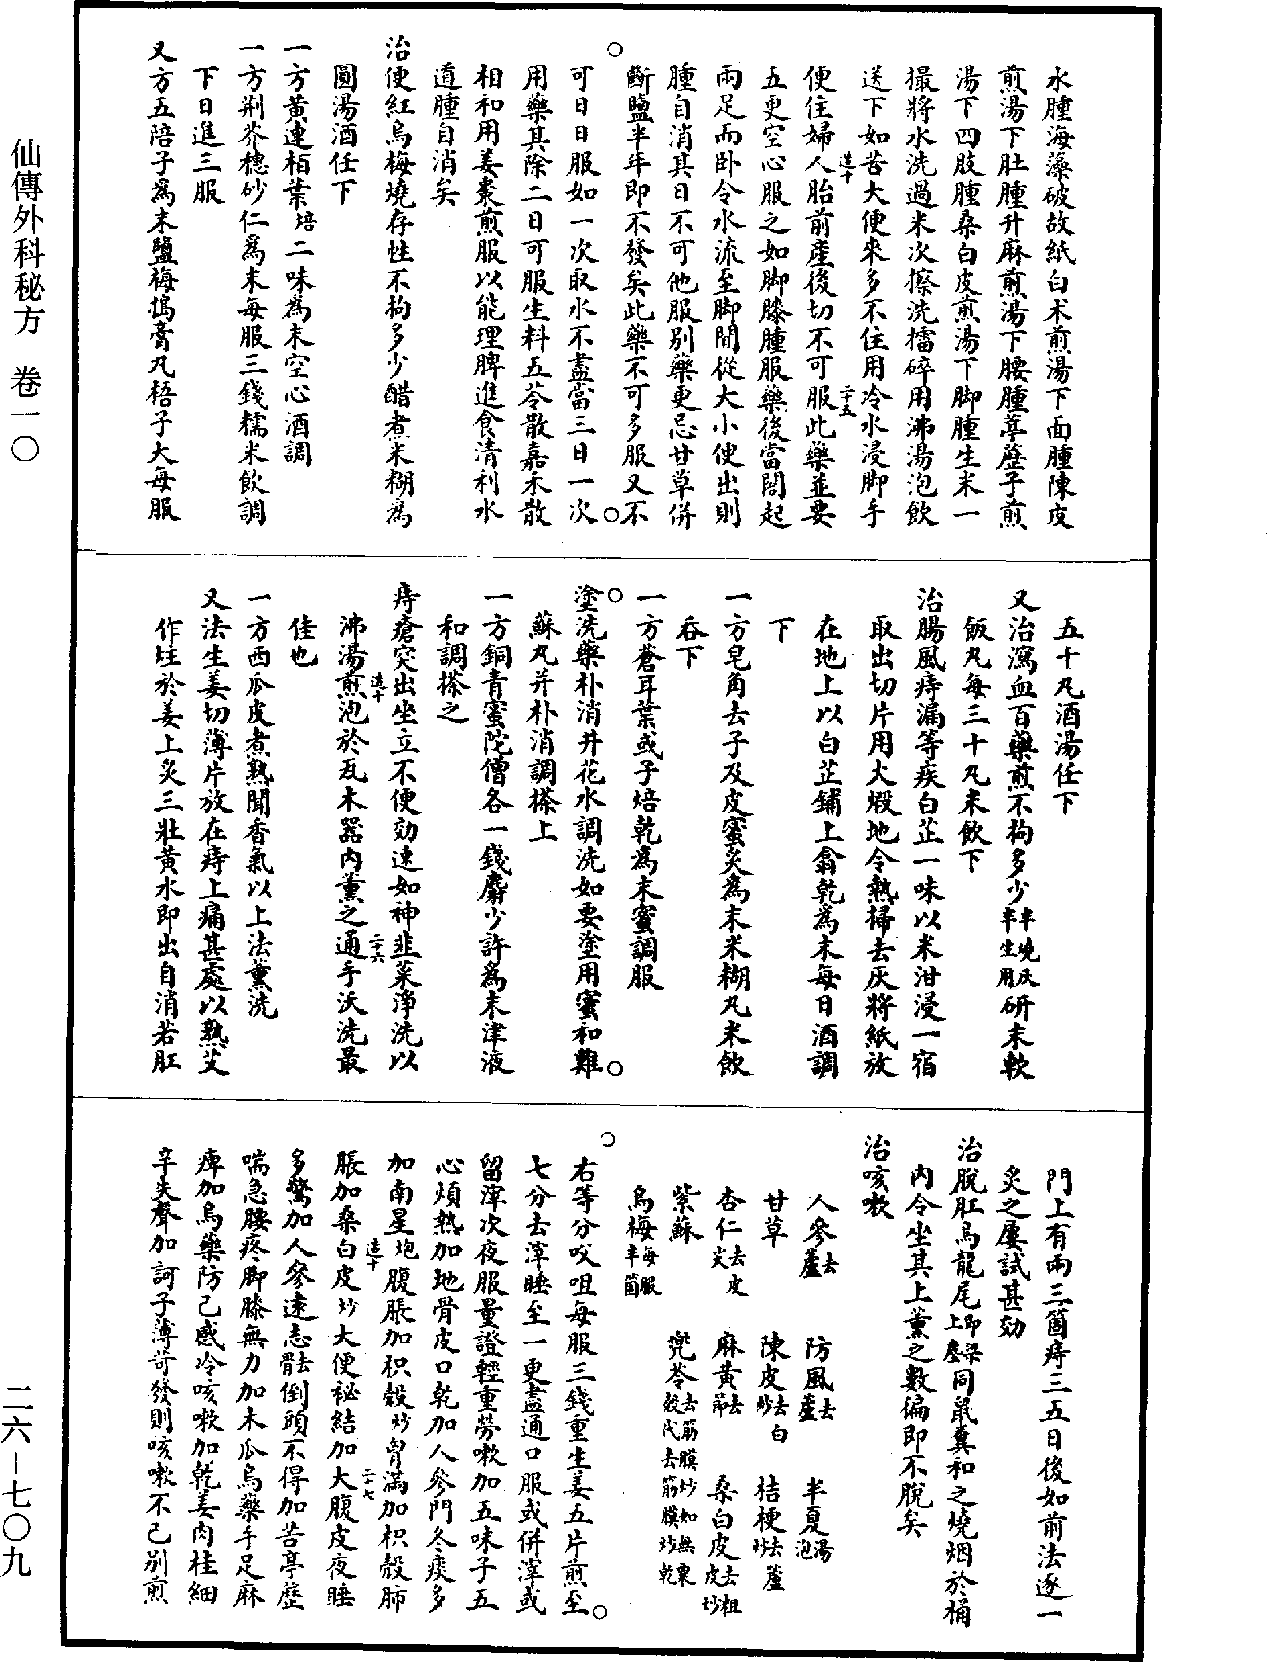 水腫海藻破故紙白术煎湯下面腫陳皮
煎湯下肚腫升麻煎湯下腰腫葶藶子煎
湯下四肢腫桑白皮煎湯下脚腫生末一
撮將水洗過米次擦洗擂碎用沸湯泡飲
送下如苦大便來多不住用冷水浸脚手
便住婦人胎前產後切不可服此藥並要
五更空心服之如脚膝腫服藥後當閣起
兩足而臥令水流至脚間從大小便出則
腫自消其日不可他服别藥更忌甘草併
斷鹽半年即不發矣此藥不可多服又不
可日日服如一次取水不盡當三日一次
用藥其除二日可服生料五苓散嘉禾散
相和用姜棗煎服以能理脾進食清利水
道腫自消矣
治便紅烏梅燒存性不拘多少醋煮米糊爲
圓湯酒任下
一方黄連栢葉焙二味爲末空心酒調
一方荆芥穗砂仁爲末每服三錢糯米飲調
下日進三服
又方五陪子爲末鹽梅搗膏丸梧子大每服
五十丸酒湯任下
又治瀉血百藥煎不拘多少半燒灰半生用研末軟
飯丸每三十丸米飲下
治腸風痔漏等疾白芷一味以米泔浸一宿
取出切片用火煅地令熱掃去灰將紙放
在地上以白芷鋪上翕乾爲末每日酒調
下
一方皂角去子及皮蜜炙爲末米糊丸米飲
吞下
一方蒼耳葉或子焙乾爲末蜜調服
塗洗藥朴消井花水調洗如要塗用蜜和雞
蘇丸并朴消調搽上
一方銅青蜜陀僧各一錢麝少許爲末津液
和調搽之
痔瘡突出坐立不便効速如神韭菜淨洗以
沸湯煎泡於瓦木器内薰之通手沃洗最
佳也
一方西瓜皮煮熟聞香氣以上法薰洗
又法生姜切薄片放在痔上痛甚處以熟艾
作炷於姜上炙三壯黄水即出自消若肛
門上有兩三箇痔三五日後如前法逐一
炙之屢試甚効
治脫肛烏龍尾即梁上塵同鼠糞和之燒烟於桶
内令坐其上薰之數徧即不脫矣
治咳嗽
人參去蘆 防風去蘆 半夏湯泡
甘草 陳皮去白炒 桔梗去蘆炒
杏仁去皮尖 麻黄去節 桑白皮去粗皮炒
紫蘇 兜苓去筋膜炒如無粟殼代去筋膜炒乾
烏梅每服半箇
右等分㕮咀每服三錢重生姜五片煎至
七分去滓睡至一更盡通口服或併滓或
留滓次夜服量證輕重勞嗽加五味子五
心煩熱加地骨皮口乾加人參門冬痰多
加南星炮腹脹加枳殼炒胷滿加枳殼肺
脹加桑白皮炒大便祕結加大腹皮夜睡
多驚加人參遠志去骨倒頭不得加苦葶藶
喘急腰疼脚膝無力加木瓜烏藥手足麻
痺加烏藥防己感冷咳嗽加乾姜肉桂細
辛失聲加訶子薄荷發則咳嗽不已别煎
仙傳外科秘方 卷一〇
二六—七〇九
造十
二十五
造十
二十六
造十
二十七